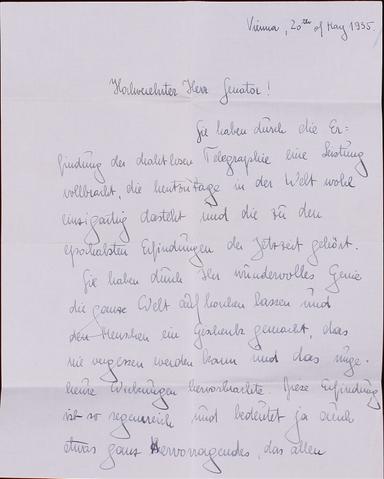 Vienna, 20th of May 1935.
Hochverehrter Herr Senator!
Sie haben durch die Er=
findung der drahtlosen Telegraphie eine Leistung
vollbracht, die heutzutage in der Welt wohl
einzigartig dasteht und die zu den
epochalsten Erfindungen der Jetztzeit gehört.
Sie haben durch Ihr wundervolles Genie
die ganze Welt aufhorchen lassen und
den Menschen ein Geschenk gemacht, das
nie vergessen werden kann und das unge-
heure Wirkungen hervorbrachte. Diese Erfindung
ist so segensreich und bedeutet ja auch
etwas ganz Hervorragendes, das allen